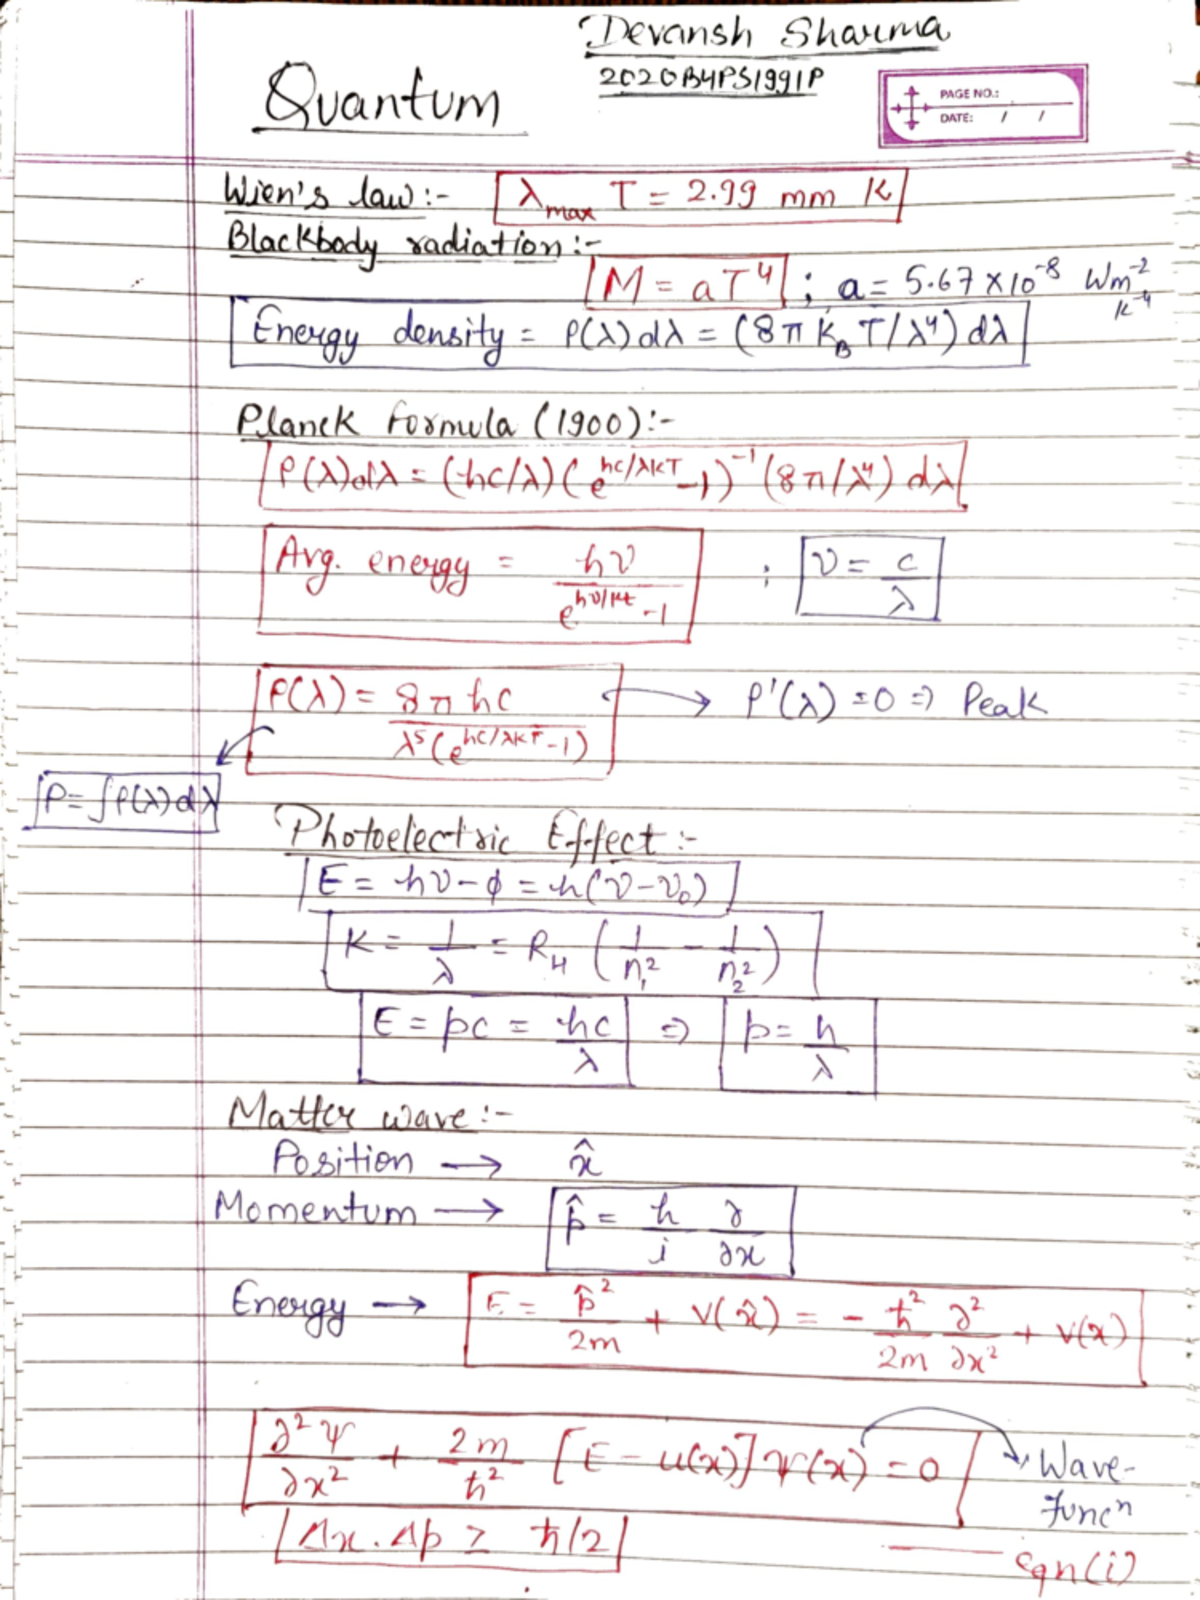 Devansh Sharma
2020B4PS1991P
Quantum
PAGE NO.:
DATE: / /
Wien's law:- λmax T = 2.99 mm K
Blackbody radiation:-
M = aT⁴ ; a = 5.67 × 10⁻⁸ Wm⁻² K⁻⁴
Energy density = ρ(λ)dλ = (8π k_B T/λ⁴) dλ
Planck formula (1900):-
ρ(λ)dλ = (hc/λ)(e^(hc/λkT) -1)⁻¹ (8π/λ⁴) dλ
Avg. energy = hν / (e^(hν/kt) -1) ; ν = c/λ
ρ(λ) = 8πhc / (λ⁵(e^(hc/λkT) -1)) → ρ'(λ) = 0 ⇒ Peak
ρ = ∫ρ(λ)dλ
Photoelectric Effect:-
E = hν - ϕ = h(ν - ν₀)
K = 1/λ = R_H (1/n₁² - 1/n₂²)
E = pc = hc/λ ⇒ p = h/λ
Matter wave:-
Position → x̂
Momentum → p̂ = ħ/i ∂/∂x
Energy → E = p̂²/2m + V(x̂) = - ħ²/2m ∂²/∂x² + V(x)
∂²Ψ/∂x² + 2m/ħ² [E - u(x)] Ψ(x) = 0 → Wave-
funcⁿ
Δx. Δp ≥ ħ/2 — eqn(i)